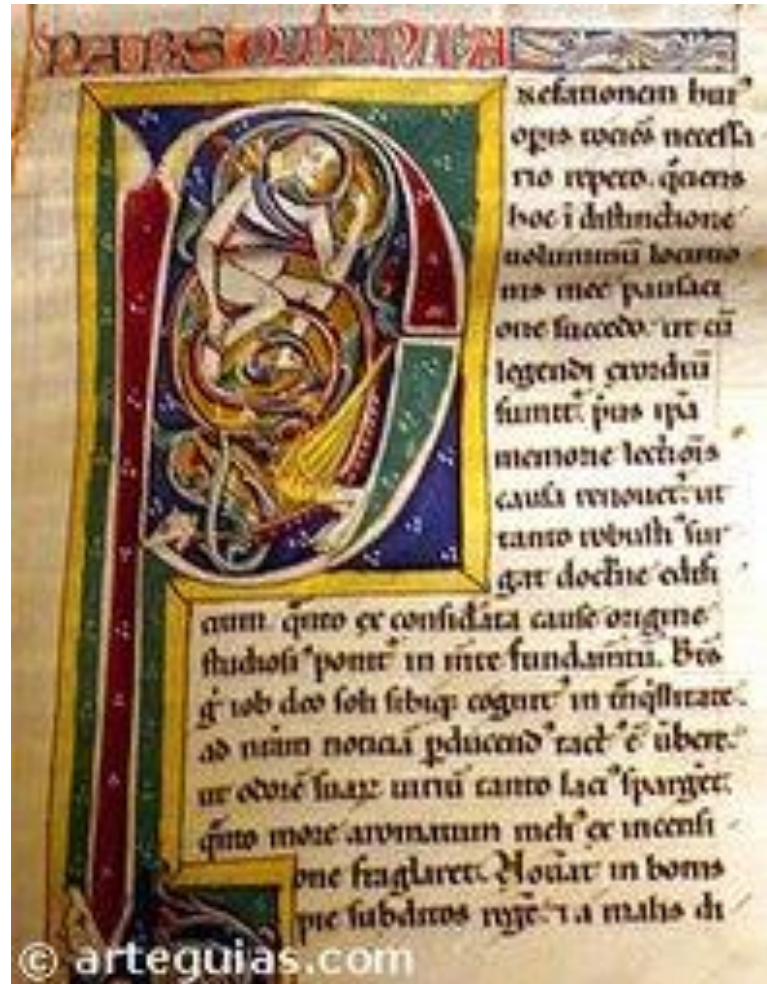 PARS QUINTA
P
refationem hui⁹
opis tociēs necessa
rio repeto. q̄ciens
hoc ī distinctione
uoluminū locutio
nis mee pausaci
one succedo. ut cū
legendi exordiū
sumit. p̄us ip̄a
memorie lectiōis
causa renouet. ut
tanto robusti⁹ sur
gat doct̄ne edifi
cium. q̄nto ex considāta cause origine
studiosi⁹ ponit in m̄te fundam̄tū. Bt̄s
g̊ iob deo soli sibiq; cognit⁹ in t̄nq̄llitate.
ad nr̄am noticiā p̄ducend⁹ tact⁹ ē ūbere.
ut odorē suaꝝ uiriū tanto laci⁹ sparget.
q̄nto more aromatum meli⁹ ex incensi
one fraglaret. Nouat in bonis
pie subditos reḡe. a malis di
© arteguias.com